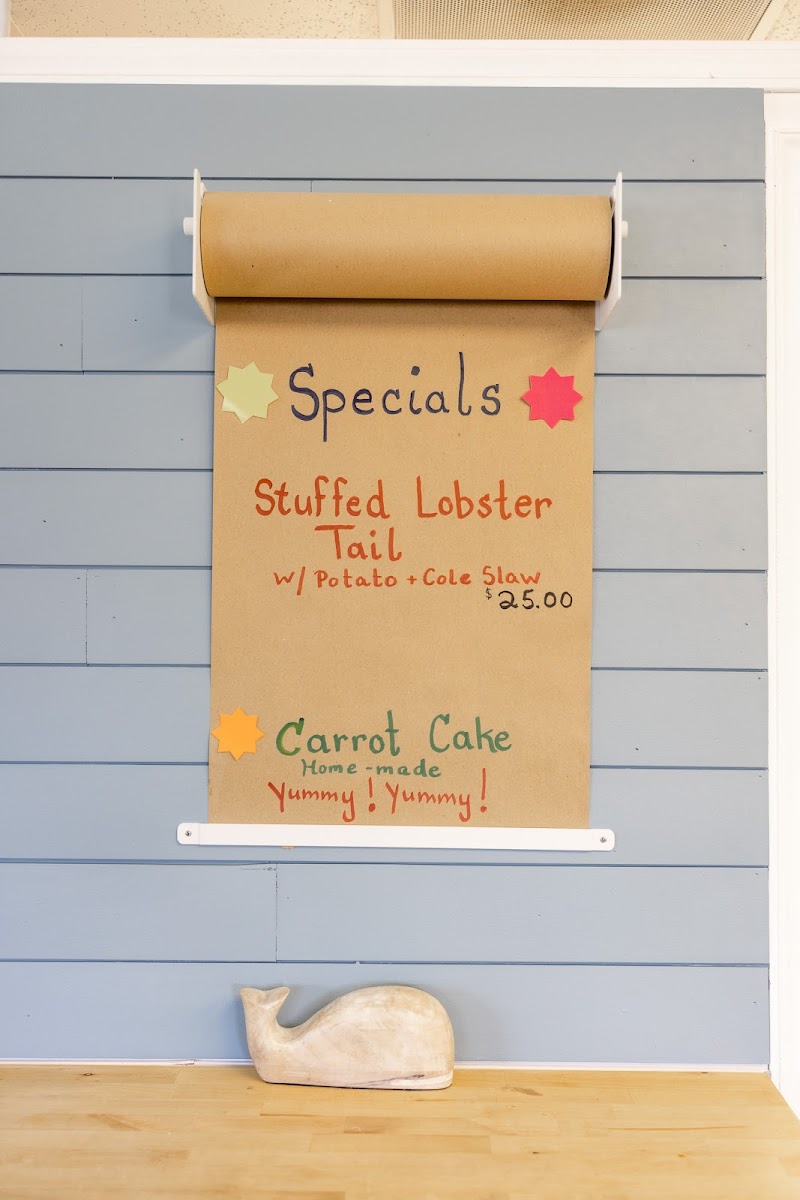 Specials
Stuffed Lobster
Tail
w/ Potato + Cole Slaw
$25.00
Carrot Cake
Home-made
Yummy! Yummy!